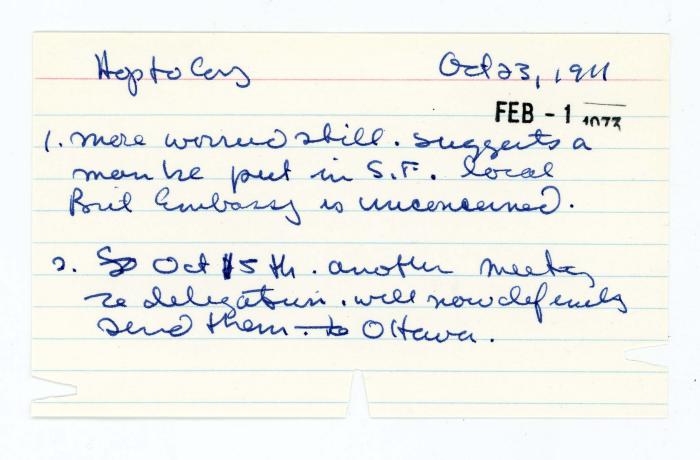 Hop to Cory Oct 23, 1911
FEB - 1 1973
1. more worried still. suggests a
man be put in S.F. local
Brit Embassy is unconcerned.
2. Oct 15th. another meeting
re delegation. will now definitely
send them. to Ottawa.